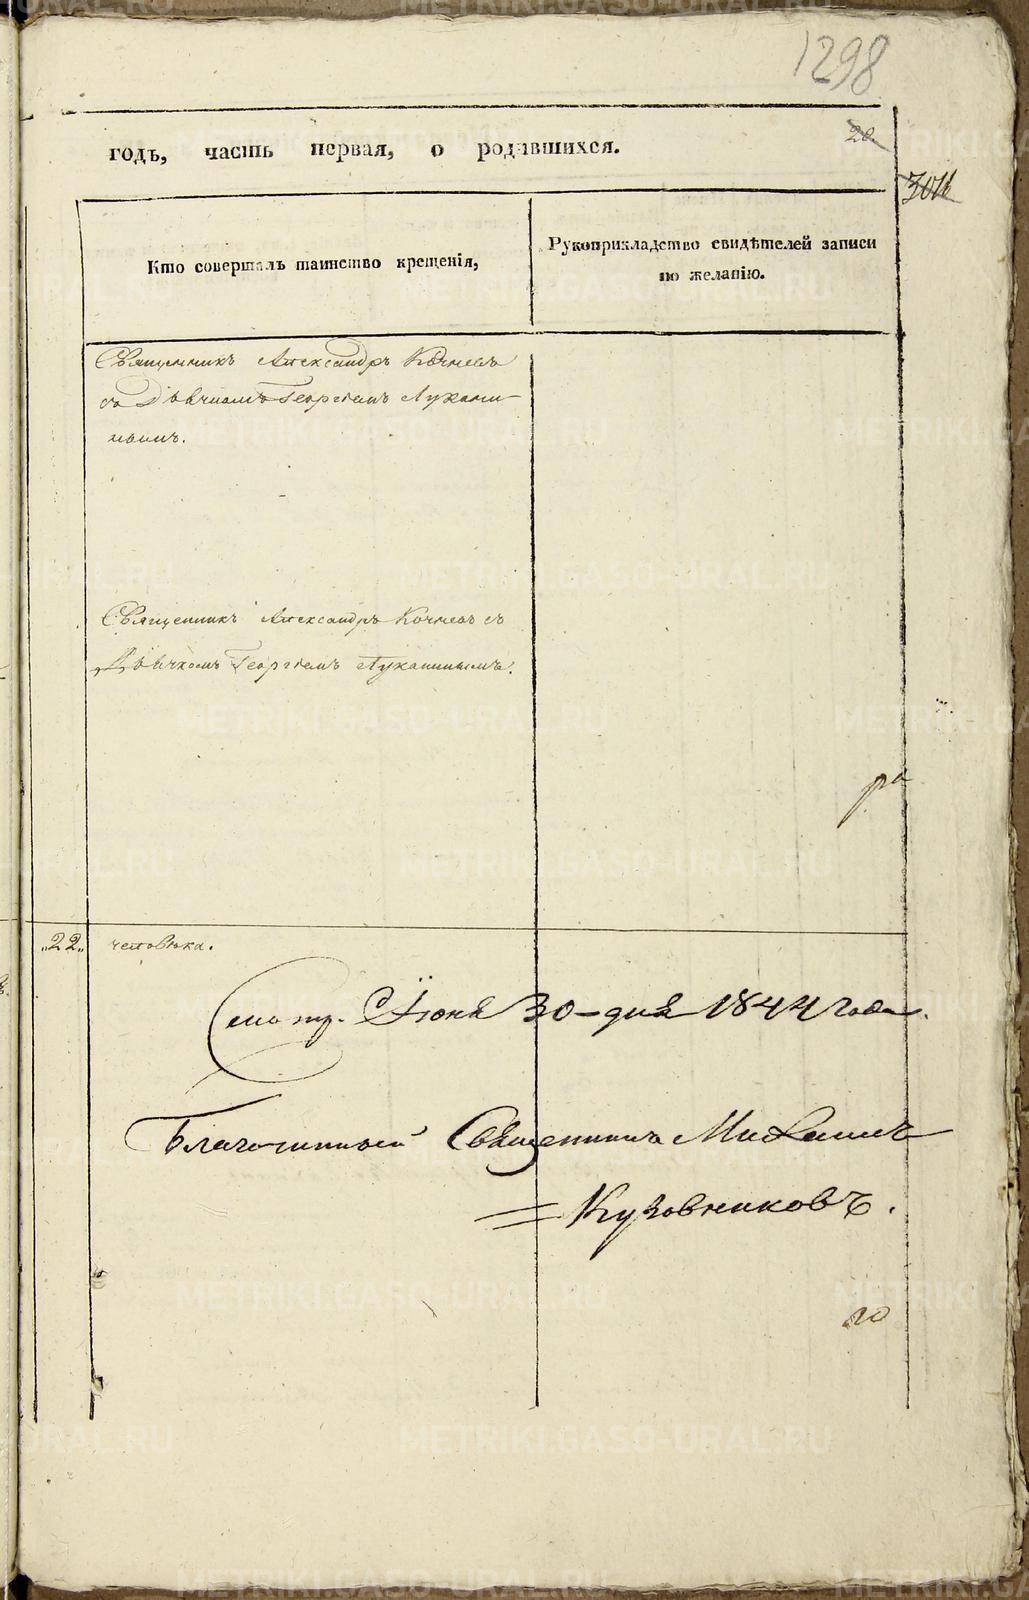 1298
годъ, часть первая, о родившихся.
20.
Кто совершалъ таинство крещенія,
Рукоприкладство свидѣтелей записи
по желанію.
Священникъ Александръ Кочневъ
съ Дьячкомъ Георгіемъ Лукани-
нымъ.
Священникъ Александръ Кочневъ съ
Дьячкомъ Георгіемъ Луканинымъ.
ра
„22„ человѣка.
Смотр. Іюня 30-дня 1844 года.
Благочинный Священникъ Михаилъ
= Кузовниковъ.
го
METRIKI.GASO-URAL.RU